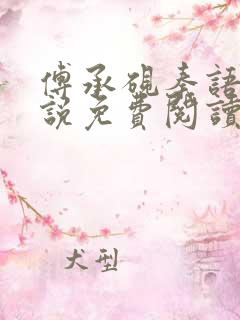 傅承硯秦語
說免費閱讀
犬型